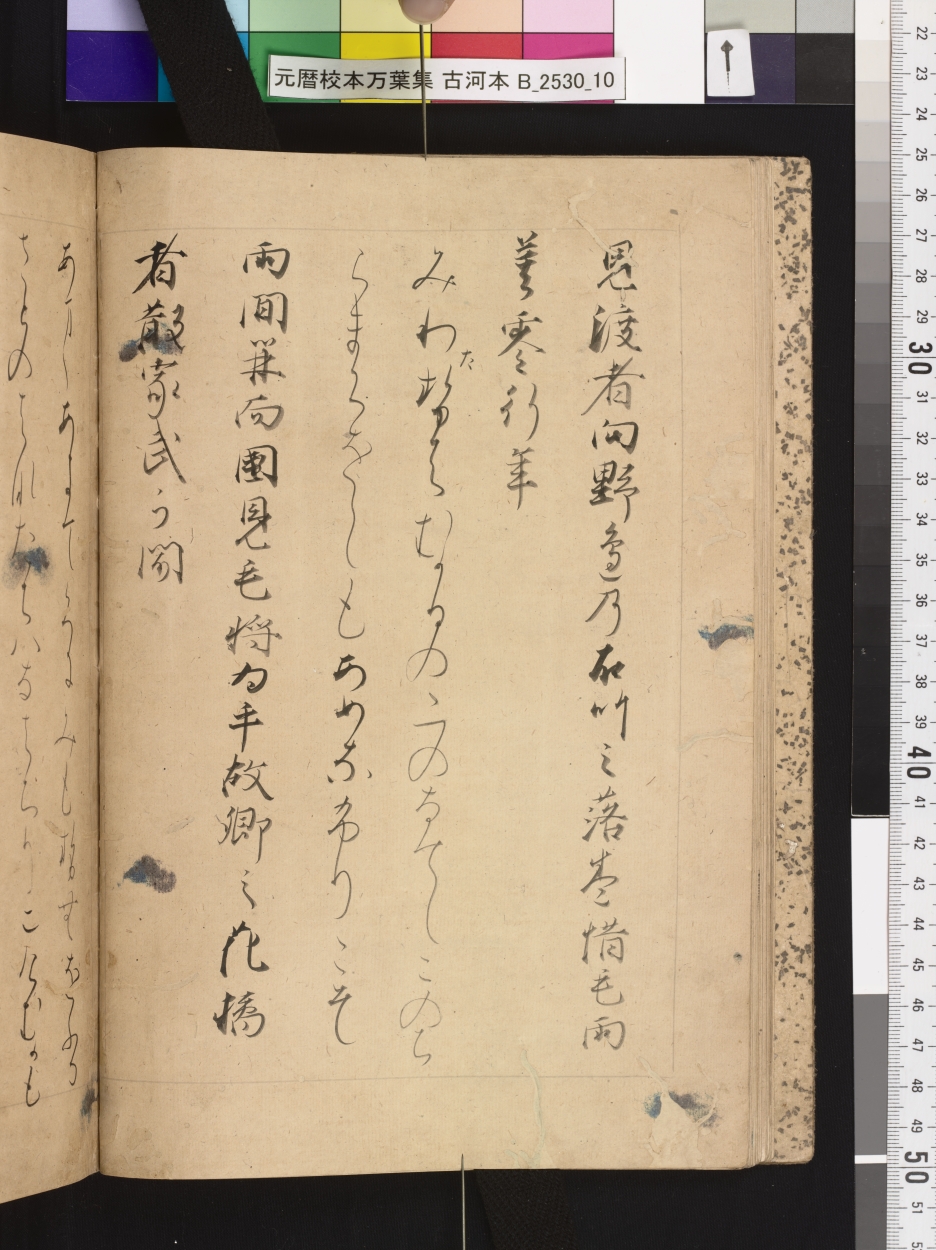 元暦校本万葉集 古河本 B_2530_10
見渡者向野邊乃石竹之落巻惜毛雨
莫零行年
みわたせはむかひのゝへのなてしこのち
らまくをしもあめなふりこそ
雨間開而國見毛将為乎故郷之花橘
者散家武可聞
あまゝあけてくにみもせむをふる
さとのはなたちはなはちりにけむかも
22
23
24
25
26
27
28
29
30
31
32
33
34
35
36
37
38
39
40
41
42
43
44
45
46
47
48
49
50
51
52